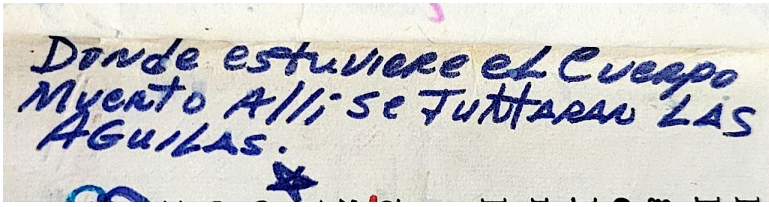 Donde estuviere el Cuerpo
Muerto Alli se Juntaran LAS
AGuiLAS.